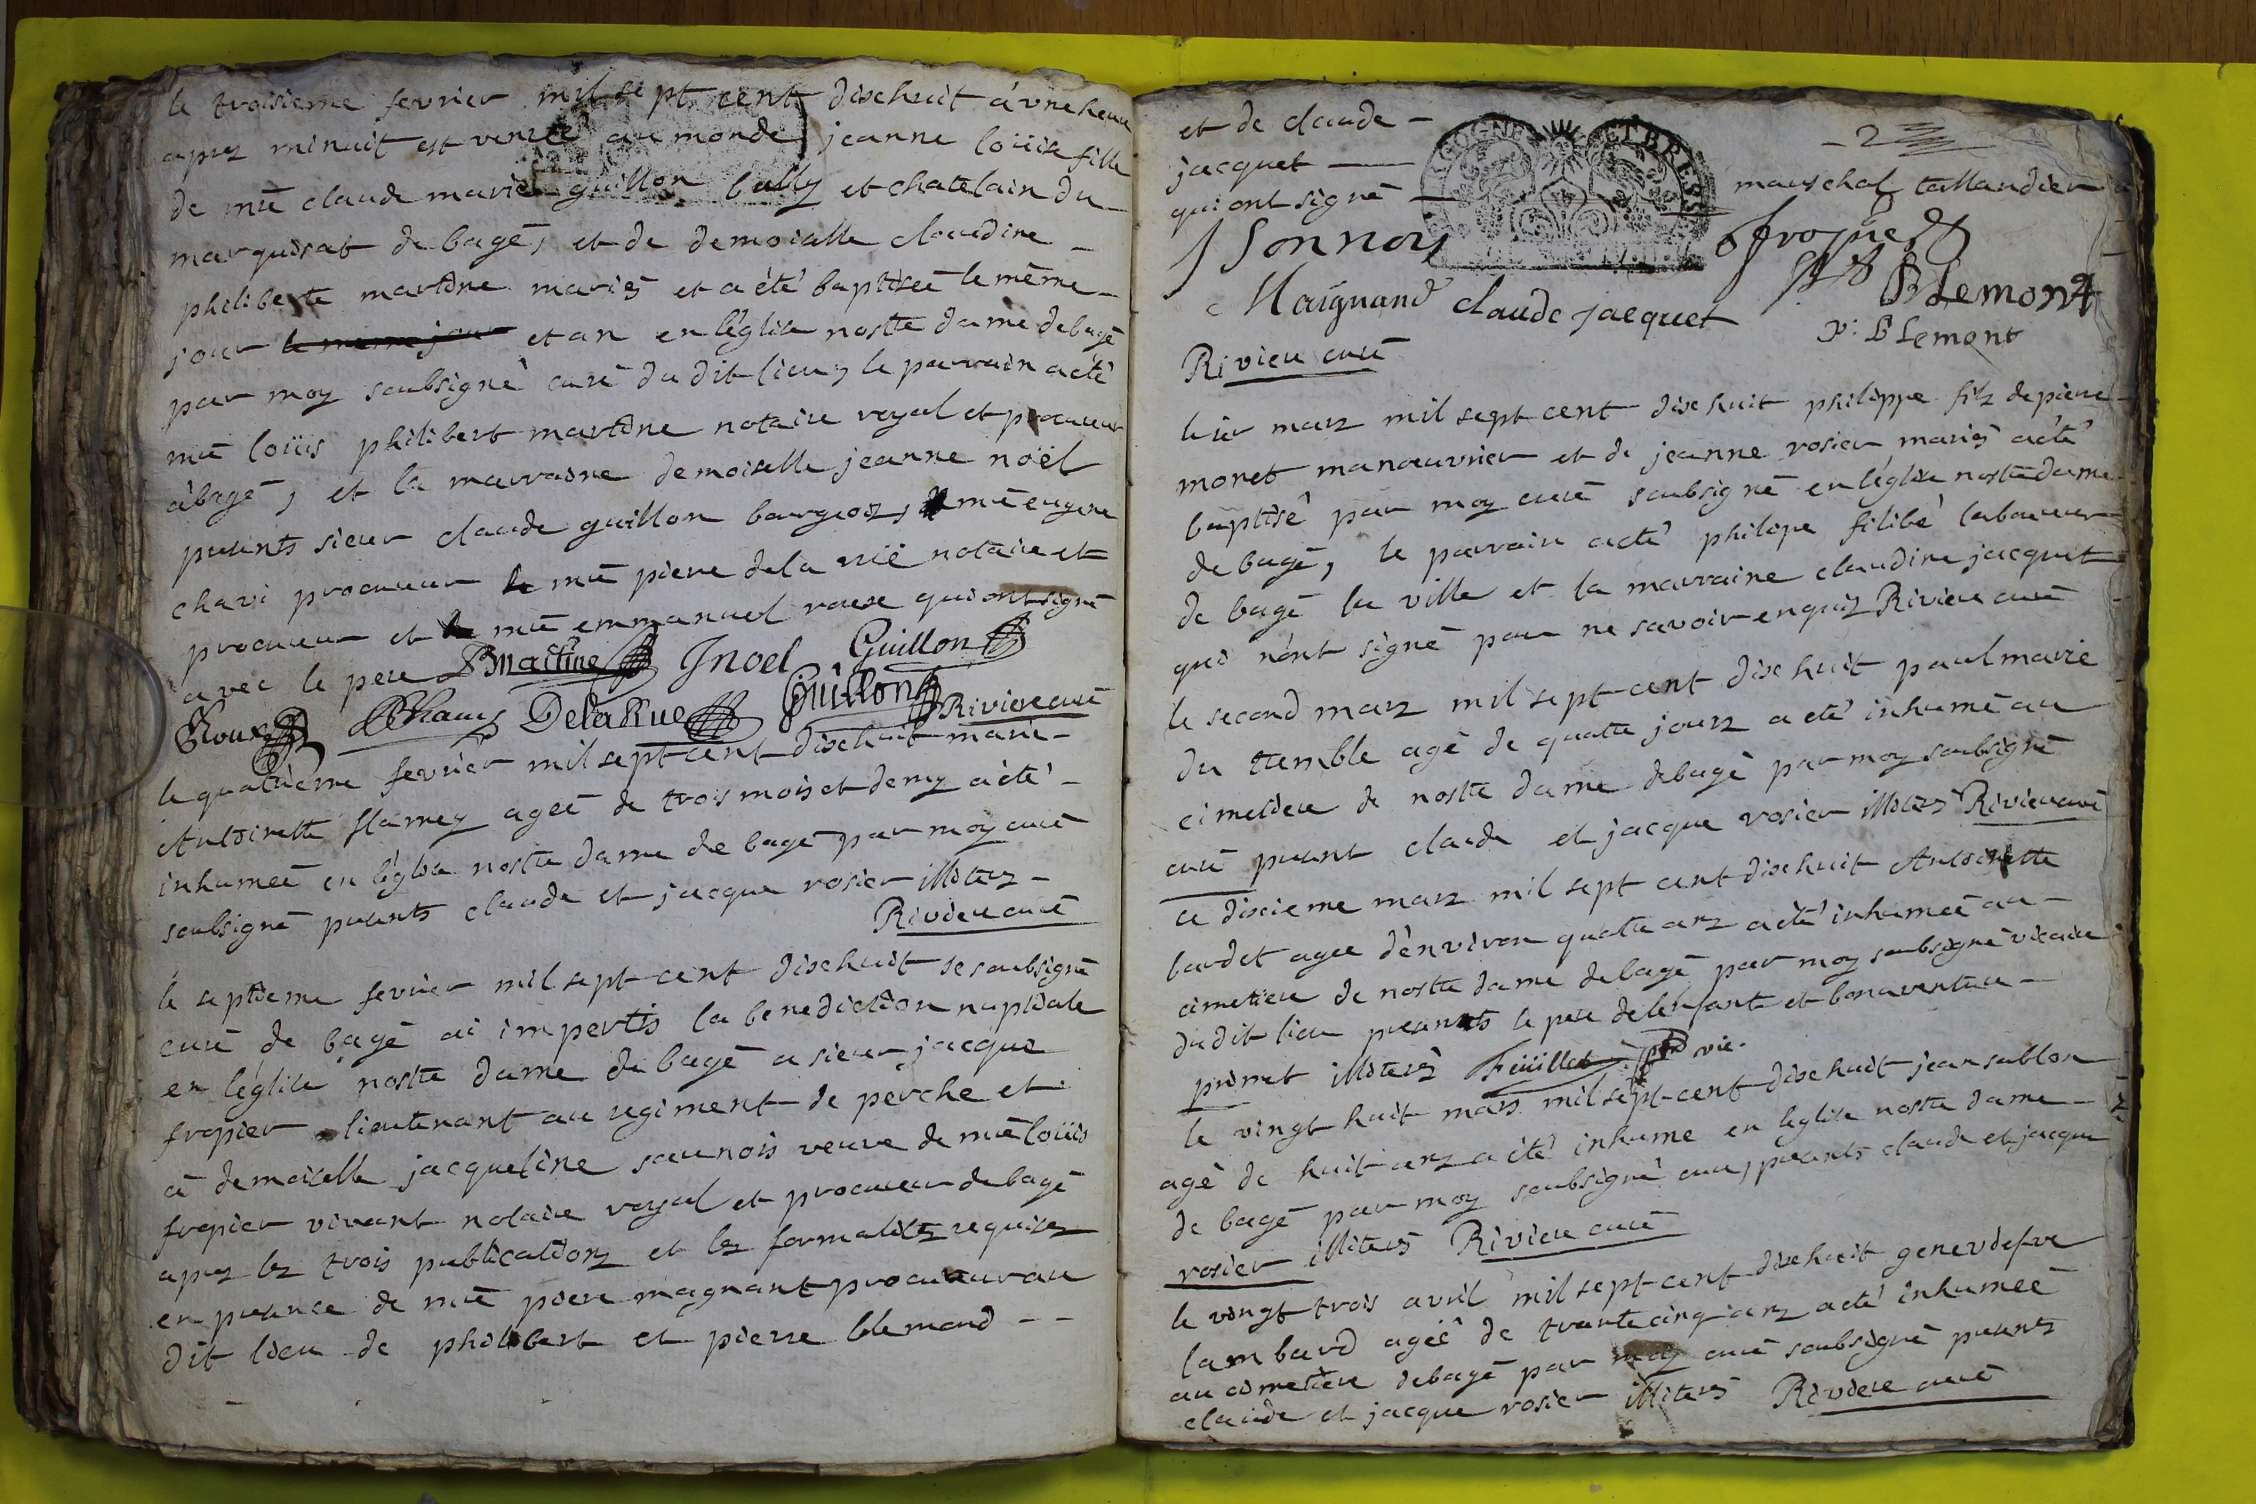 le troisieme fevrier mil sept cent dixhuit à une heure
apres minuit est venue au monde jeanne loüise fille
de me claude marie guillon bally et chatelain du
marquisat de bagé, et de demoiselle claudine
philiberte martine mariés et a été baptisée le même
jour le meme jour et an en léglise nostre dame de bagé
par moy soubsigné curé du dit lieu, le parrain a été
me loüis philibert martine notaire royal et procureur
à bagé, et la marraine demoiselle jeanne noël
presents sieur claude guillon bourgeois, me eugene
chavi procureur me piere dela rüe notaire et
procureur et me emmanuel roux qui ont signé
avec le pere Martine Jnoel Guillon
Roux Chavy DelaRue Guillon Riviere curé
le quatrieme fevrier mil sept cent dixhuit marie
Antoinette flamey ageé de trois mois et demy a été
inhumeé en léglise nostre dame de bagé par moy curé
soubsigné presents claude et jacque rosier illiterez
Riviere curé
le septieme fevrier mil sept cent dixhuit je soubsigné
curé de bagé ai impertis la benediction nuptiale
en léglise nostre dame de bagé a sieur jacque
fropier lieutenant au regiment de perche et
à demoiselle jacqueline saunois veuve de me loüis
fropier vivant notaire royal et procureur de bagé
apres les trois publications et les formalités requises
en presence de me piere magnant procureur au
dit lieu de philibert et pierre blemond
et de claude
jacquet
qui ont signé
- 2
mareschal taillandier
J Sonnoy
Maignand claude jacquet
B Lemont
p. b Lemont
Riviere curé
le ier mars mil sept cent dixhuit philippe fils de piere
monet manouvrier et de jeanne rosier mariés a été
baptisé par moy curé soubsigné en léglise nostre dame
de bagé, le parrain a été philipe filibé laboureur
de bagé la ville et la marraine claudine jacquet
qui n'ont signé pour ne savoir enquis Riviere curé
le second mars mil sept cent dixhuit paul marie
du tremble agé de quatre jours a été inhumé au
cimetiere de nostre dame de bagé par moy soubsigné
curé present claude et jacque rosier illiterés Riviere curé
ce dixieme mars mil sept cent dixhuit Antoinette
bardet agee d'environ quatre ans a été inhumeé au
cimetiere de nostre dame de bagé par moy soubsigné vicaire
du dit lieu presents le pere de lenfant et bonaventure
primet illiterés Feüillet vic.
le vingt huit mars mil sept cent dixhuit jean sublon
agé de huit ans a été inhume en léglise nostre dame
de bagé par moy soubsigné curé, presents claude et jacque
rosier illiterés Riviere curé
le vingt trois avril mil sept cent dixhuit genevieve
lambard ageé de trante cinq ans a eté inhumeé
au cimetiere de bagé par moy curé soubsigné presents
claude et jacque rosier illiterés Riviere curé